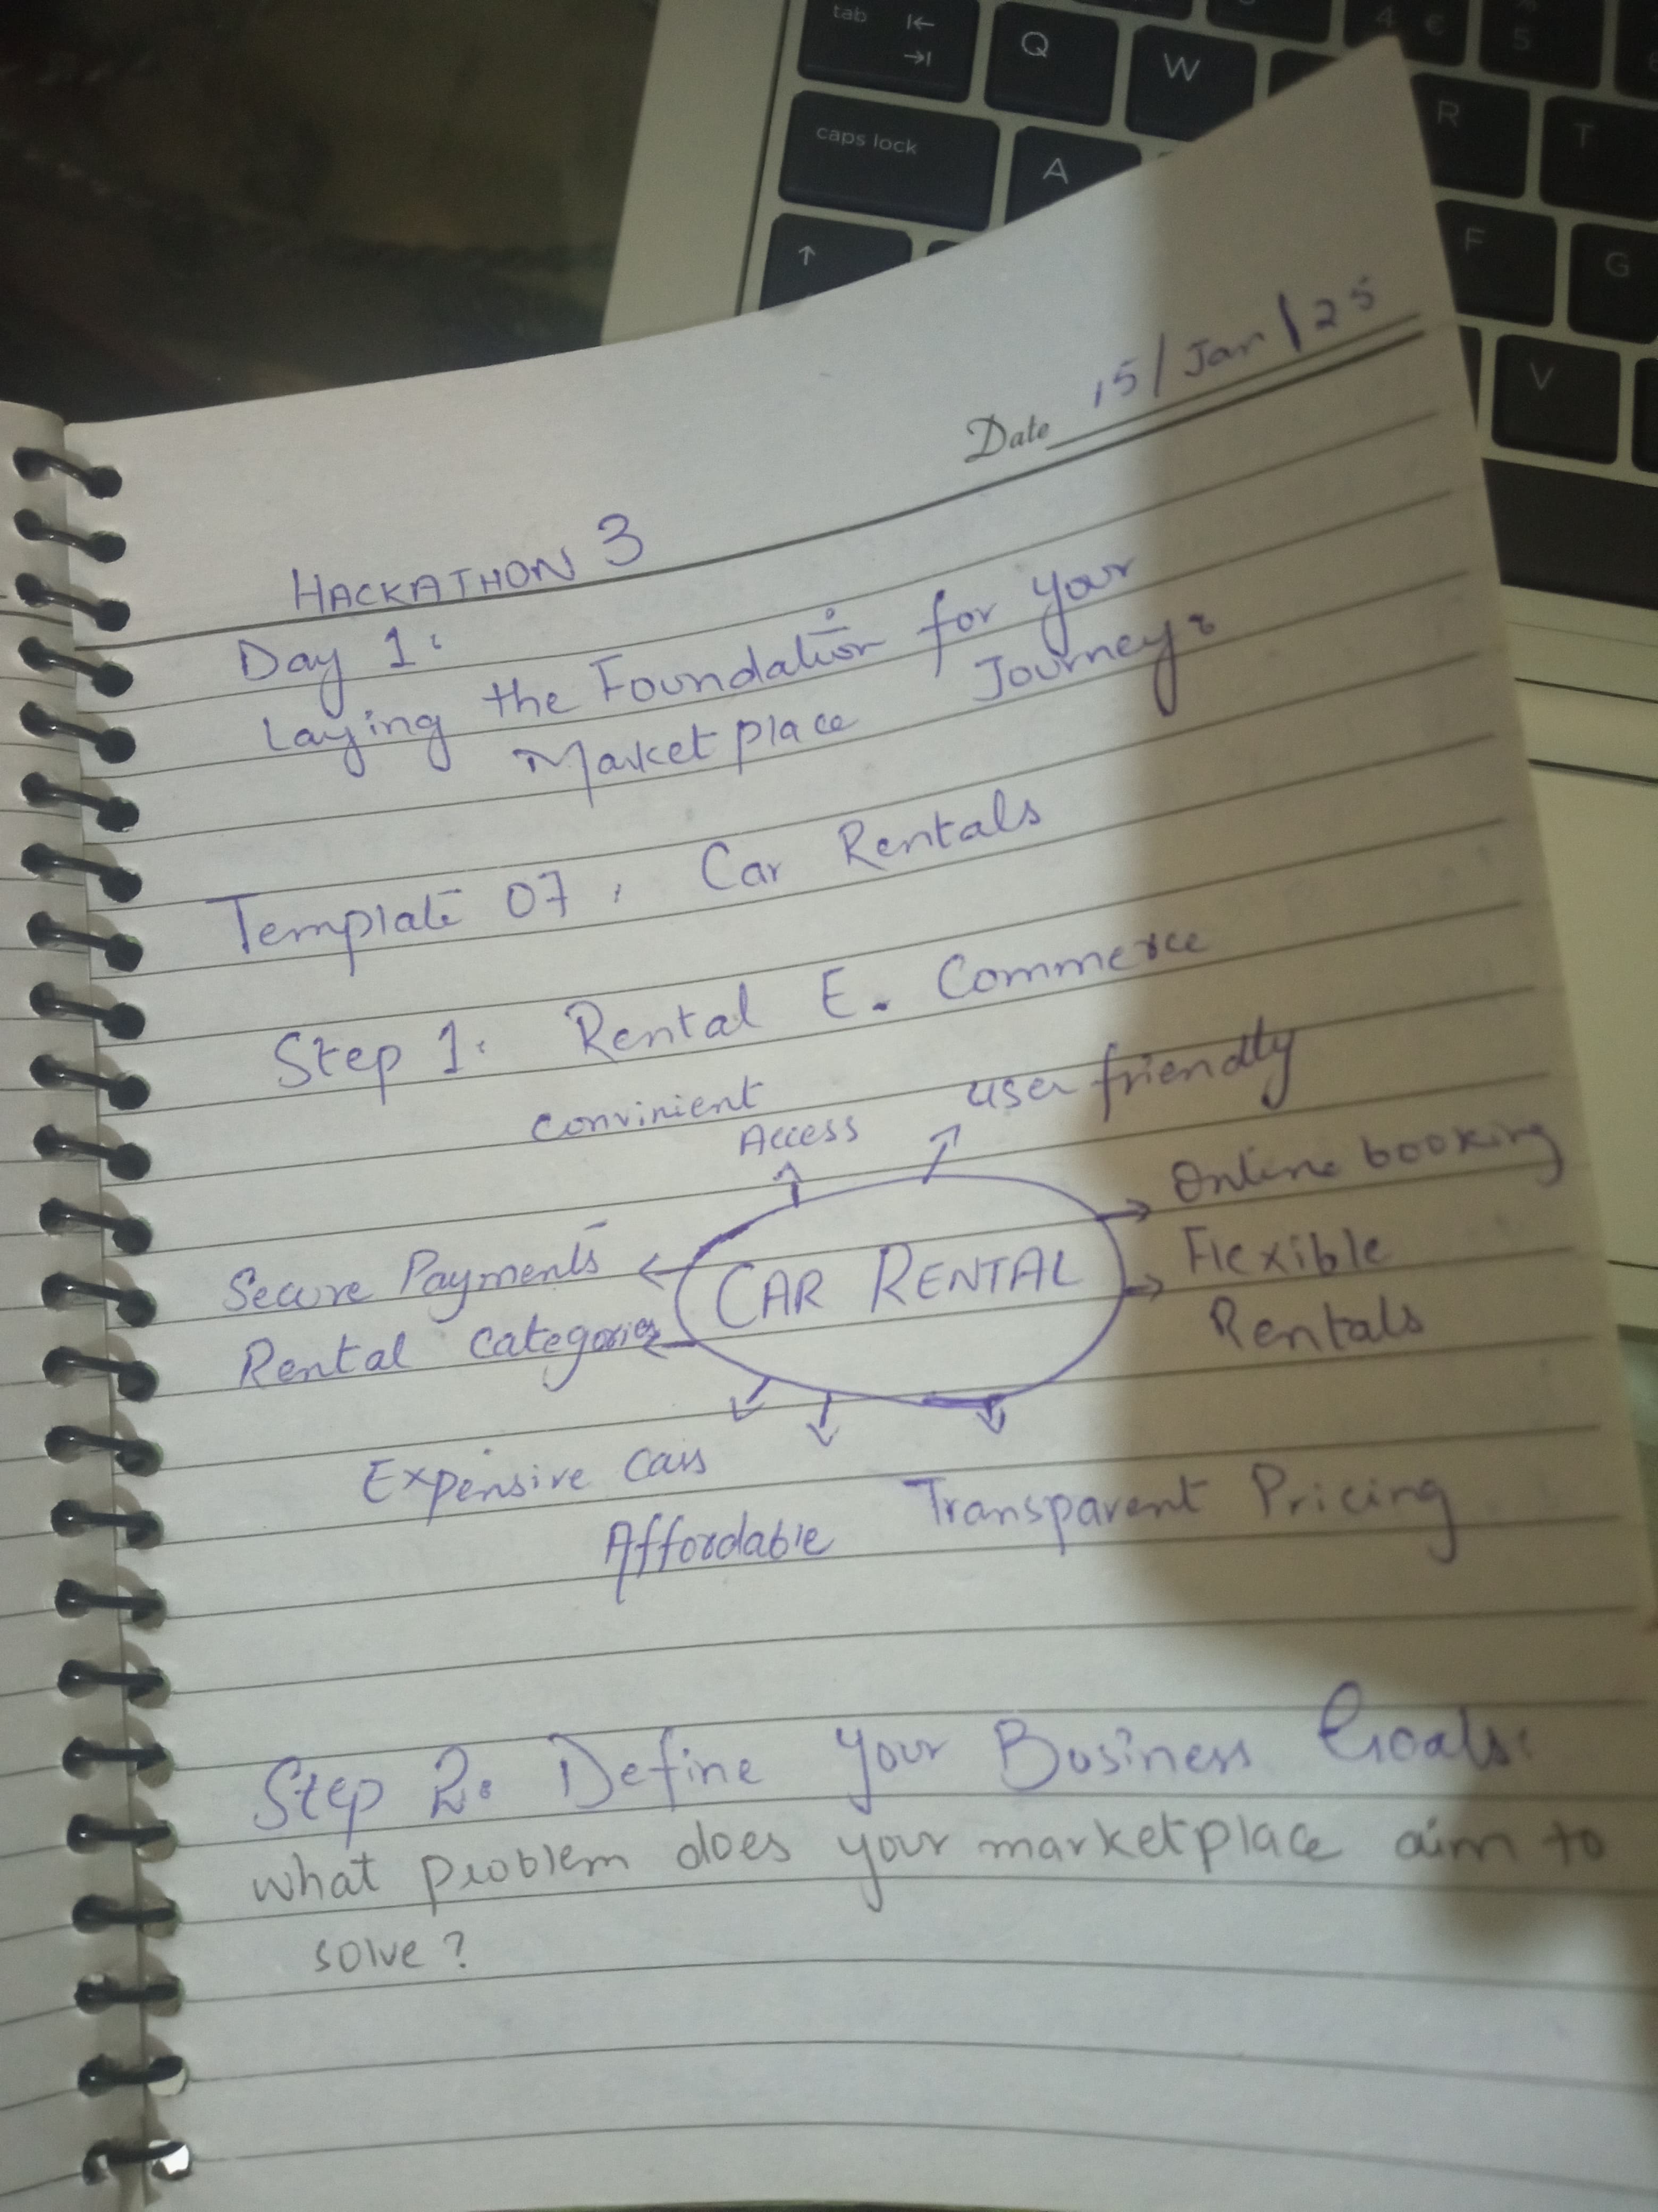 tab
Q
W
4 €
5
caps lock
A
R
T
F
G
V
Date 15/Jan/25
HACKATHON 3
Day 1:
Laying the Foundation for your
Marketplace Journey:
Template 07, Car Rentals
Step 1: Rental E. Commerce
Convinient
Access
user friendly
Online booking
Secure Payments
CAR RENTAL
Flexible
Rentals
Rental Categories
Expensive Cars
Affordable
Transparent Pricing
Step 2: Define your Business Goals:
what problem does your marketplace aim to
solve?